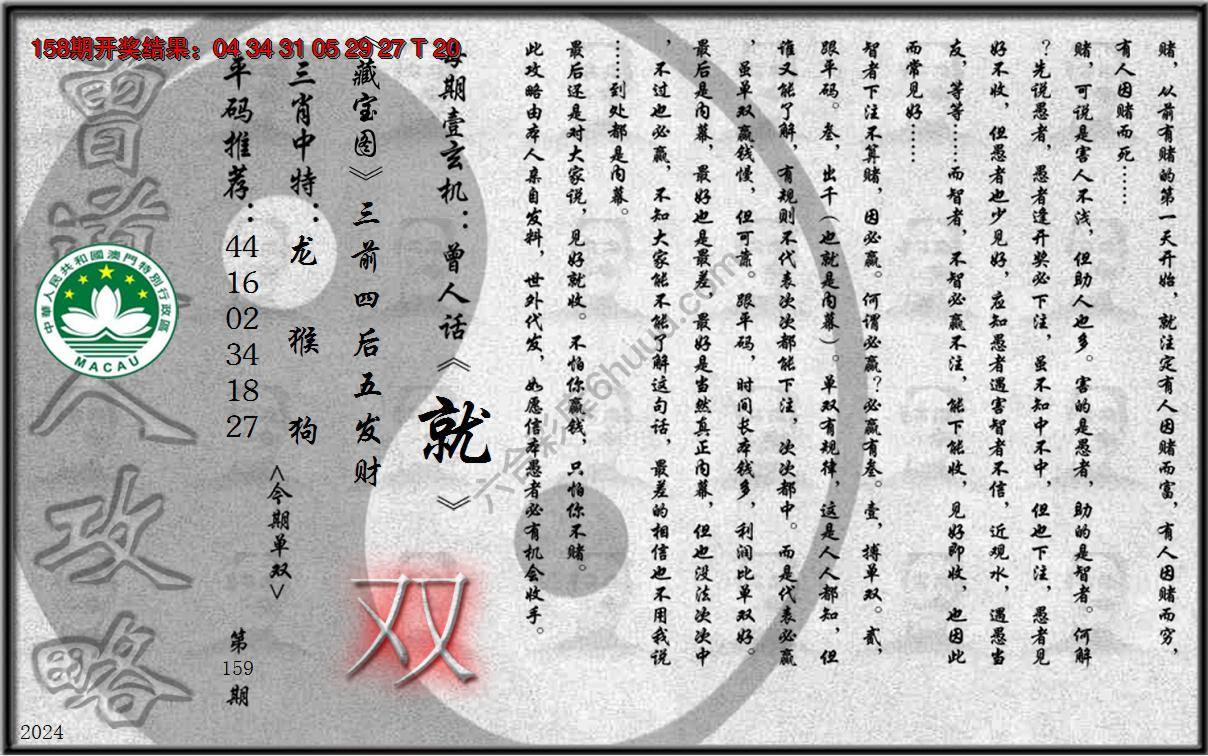 158期开奖结果：04 34 31 05 29 27 T 20
赌，从前有赌的第一天开始，就注定有人因赌而富，有人因赌而穷，
有人因赌而死……
赌，可说是害人不浅，但助人也多。害的是愚者，助的是智者。何解
？先说愚者，愚者逢开奖必下注，虽不知中不中，但也下注，愚者见
好不收，但愚者也少见好，应知愚者遇害智者不信，近观水，遇愚当
友，等等……而智者，不智必赢不注，能下能收，见好即收，也因此
而常见好……
智者下注不算赌，因必赢。何谓必赢？必赢有叁。壹，搏单双。贰，
跟平码。叁，出千（也就是内幕）。单双有规律，这是人人都知，但
谁又能了解，有规则不代表次次都能下注，次次都中。而是代表必赢
，虽单双赢钱慢，但可靠。跟平码，时间长本钱多，利润比单双好。
最后是内幕，最好也是最差，最好是当然真正内幕，但也没法次次中
，不过也必赢，不知大家能不能了解这句话，最差的相信也不用我说
……到处都是内幕。
最后还是对大家说，见好就收。不怕你赢钱，只怕你不赌。
此攻略由本人亲自发料，世外代发，如愿信本愚者必有机会收手。
每期壹玄机：曾人话《就》
《藏宝图》三前四后五发财
双
三肖中特：龙 猴 狗
<今期单双>
平码推荐：
44
16
02
34
18
27
第
159
期
曾道人攻略
中華人民共和國澳門特別行政區
MACAU
2024
六合彩库6huuu.com